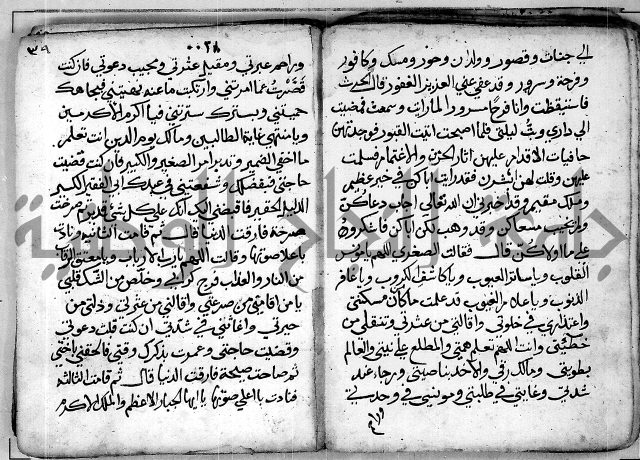 الى جنات وقصور وولدان وحور ومسك وكافور
وفرحة وسرور وقد عفى عني العزيز الغفور قال الحدث
فاستيقظت وانا فرحا مسرورا لما رايت وسمعت فمضيت
الى داري وبت ليلتي فلما اصبحت اتيت القبور فوجدتهن
حافيات الاقدام عليهن اثار الحزن والاغتمام فسلمت
عليهن وقلت لهن ابشرن فقد رايت اباكن في خير عظيم
وملك مقيم وقد خبرني ان الله تعالى اجاب دعاكن
ولم يخيب مسعاكن وقد وهب لكن اباكن فاشكروه
على ما اولاكن قال فقالت الصغرى اللهم يا مونس
القلوب ويا ساتر العيوب ويا كاشف الكروب ويا غافر
الذنوب ويا علام الغيوب قد علمت ما كان مسكنتي
واعتذاري في خلوتي واقالتي من عثرتي وتنقلي من
خطيئتي وانت اللهم تعلم همتي والمطلع على نيتي والعالم
بطويتي ومالك رقي والاخذ بناصيتي ورجاء عند
شدتي وغايتي في طلبتي ومونسي في وحدتي
وراحم
٣٩
٠٠٣٨
وراحم عبرتي ومقيل عثرتي ومجيب دعوتي فان كنت
قصرت عما امرتني وارتكبت ما عنه نهيتني فبجاهك
حميتني وبسترك سترتني فيا اكرم الاكرمين
ويا منتهى غاية الطالبين ومالك يوم الدين انت تعلم
ما اخفي الضمير وتدبر امر الصغير والكبير فان كنت قضيت
حاجتي بفضلك وشفعتني في عبدك ابي الفقير الكسير
الذليل الحقير فاقبضني اليك انك على كل شي قدير ثم صرخت
صرخة فارقت الدنيا قال ثم قامت الثانية ونادت
باعلا صوتها وقالت اللهم يا رب الارباب ويا معتق الرقاب
من النار والعذاب فرج كربي وخلص من الشك قلبي
يا من اقامني من صرعتي واقالني من عثرتي ودلني من
حيرتي واغاثني في شدتي ان كنت قبلت دعوتي
وقضيت حاجتي وعمرت بذكرك وقتي فالحقني باختي
ثم صاحت صيحة فارقت الدنيا قال ثم قامت الثالثة
فنادت باعلى صوتها يا ايها الجبار الاعظم والملك الاكرم
جامعة النجاح الوطنية